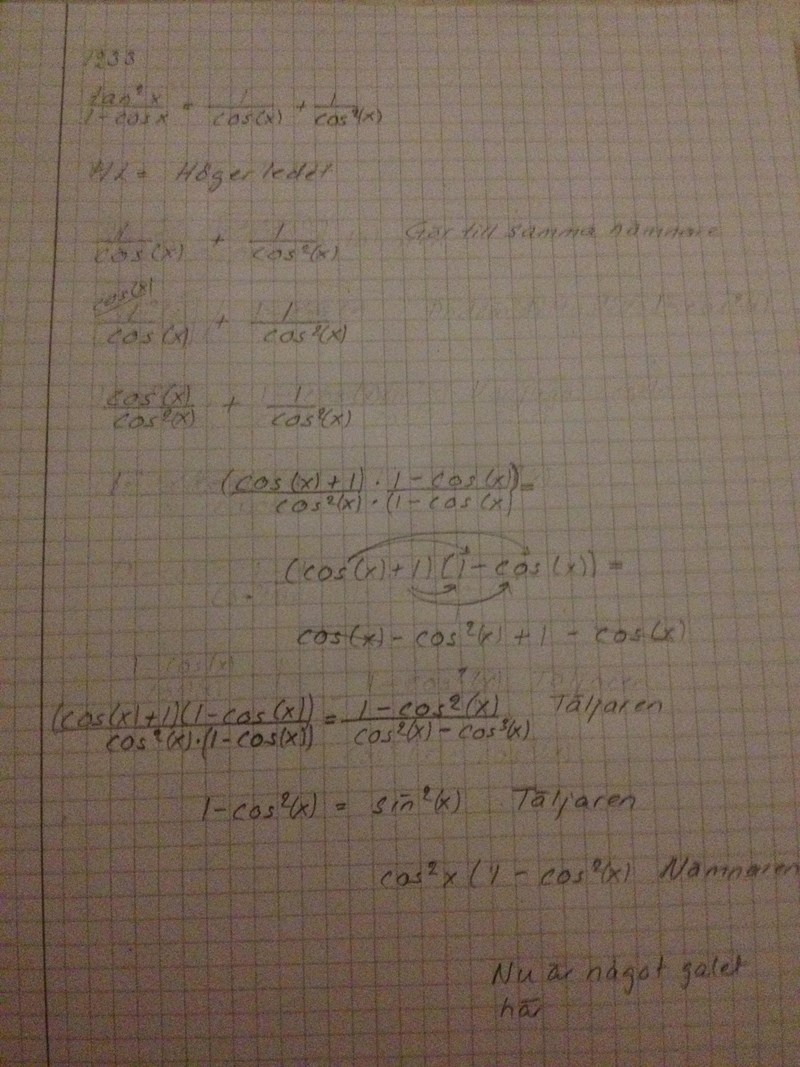 1233
tan²x / 1-cosx = 1 / cos(x) + 1 / cos²(x)
HL = Höger ledet
1 / cos(x) + 1 / cos²(x) Gör till samma nämnare
cos(x) 1 / cos(x) + 1 / cos²(x)
cos(x) / cos²(x) + 1 / cos²(x)
(cos(x)+1) · 1-cos(x)) / cos²(x) · (1-cos(x) =
(cos(x)+1) (1-cos(x)) =
cos(x) - cos²(x) + 1 - cos(x)
(cos(x)+1)(1-cos(x)) / cos²(x)·(1-cos(x)) = 1-cos²(x) / cos²(x)-cos³(x) Täljaren
1-cos²(x) = sin²(x) Täljaren
cos²x (1-cos²(x) Nämnaren
Nu är något galet
här